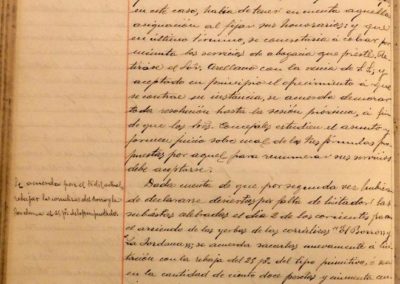 en este caso, había de tener en cuenta aquella
asignación al fijar sus honorarios; y que
en último término, se concretaría a cobrar por
minuta los servicios de abogado que preste. Re-
tirase el Sor. Orellano con la venia de S. S. y
aceptado en principio el ofrecimiento a que
se contrae su instancia, se acuerda demorar
toda resolución hasta la sesión próxima, a fin
de que los Sres. Concejales estudien el asunto y
formen juicio sobre cual de las tres fórmulas pro-
puestas por aquel para remunerar sus servicios
debe aceptarse.
Se acuerda por el
rebajar las
Dada cuenta de que por segunda vez hubie-
ron de declararse desiertas por falta de licitador las
subastas celebradas el día 2 de los corrientes para
el arriendo de las yerbas de los corralizas "El Borron y
La Jordana"; se acuerda sacarlas nuevamente a lici-
tación con la rebaja del 25 p% del tipo primitivo, o sea
en la cantidad de ciento doce pesetas y cincuenta